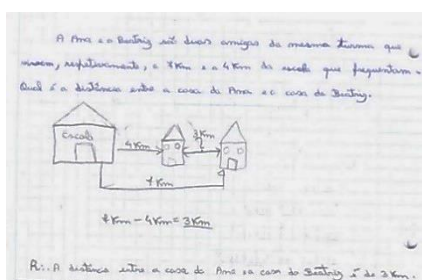 A Ana e a Beatriz são duas amigas da mesma turma que
vivem, respetivamente, a 7Km e a 4Km da escola que frequentam.
Qual é a distância entre a casa da Ana e a casa da Beatriz.
Escola
4Km
3Km
7Km
7Km - 4Km = 3Km
R:. A distância entre a casa da Ana e a casa da Beatriz é de 3Km.